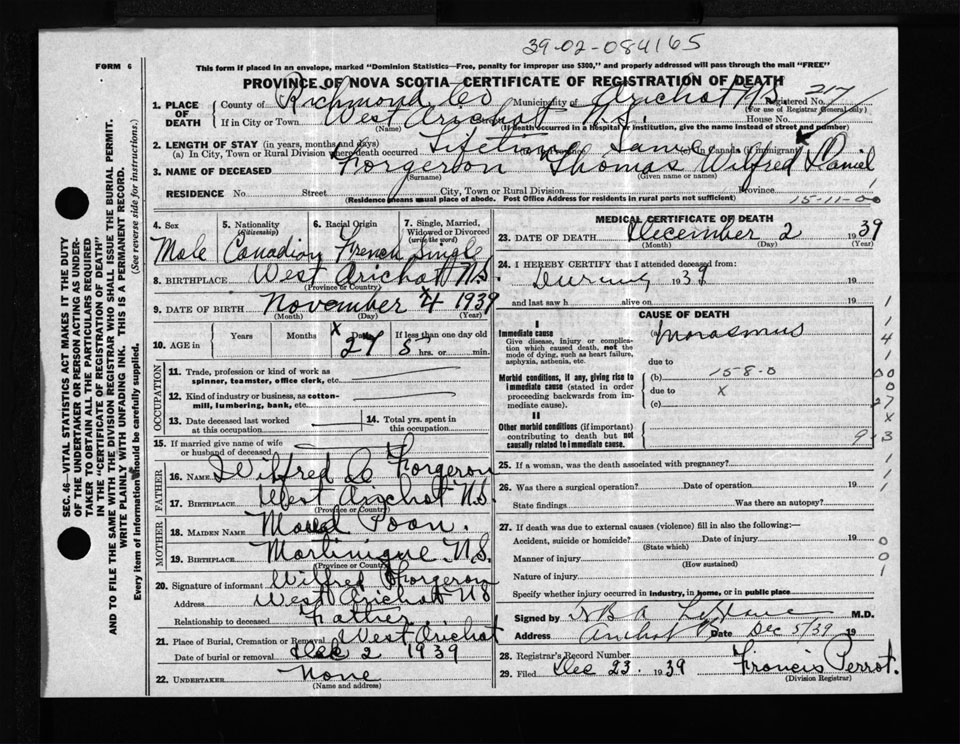 39-02-084165
FORM 6
This form if placed in an envelope, marked "Dominion Statistics—Free, penalty for improper use $300," and properly addressed will pass through the mail "FREE"
PROVINCE OF NOVA SCOTIA CERTIFICATE OF REGISTRATION OF DEATH
1. PLACE OF DEATH
County of Richmond Co Municipality of Arichat N.S. Registered No. 217
(For use of Registrar General only)
If in City or Town West Arichat N.S. House No.
(Name) (If death occurred in a Hospital or institution, give the name instead of street and number)
2. LENGTH OF STAY (in years, months and days)
(a) In City, Town or Rural Division where death occurred Lifetime In Province Same In Canada (if immigrant)
3. NAME OF DECEASED Forgeron Thomas Wilfred Daniel
(Surname) (Given name or names)
RESIDENCE No Street City, Town or Rural Division Province
(Residence means usual place of abode. Post Office Address for residents in rural parts not sufficient) 15-11-00
4. Sex 5. Nationality (Citizenship) 6. Racial Origin 7. Single, Married, Widowed or Divorced (write the word)
Male Canadian French Single
8. BIRTHPLACE West Arichat N.S.
(Province or Country)
9. DATE OF BIRTH November 4 1939
(Month) (Day) (Year)
10. AGE in Years Months Days If less than one day old
x 27 hrs. or min.
OCCUPATION
11. Trade, profession or kind of work as spinner, teamster, office clerk, etc.
12. Kind of industry or business, as cotton-mill, lumbering, bank, etc.
13. Date deceased last worked at this occupation 14. Total yrs. spent in this occupation
15. If married give name of wife or husband of deceased
FATHER
16. NAME Wilfred Forgeron
17. BIRTHPLACE West Arichat N.S.
(Province or Country)
MOTHER
18. MAIDEN NAME Poon.
19. BIRTHPLACE Martinique N.S.
(Province or Country)
20. Signature of informant Wilfred Forgeron
Address West Arichat N S
Relationship to deceased Father
21. Place of Burial, Cremation or Removal West Arichat
Date of burial or removal Dec 2 1939
22. UNDERTAKER None
(Name and address)
MEDICAL CERTIFICATE OF DEATH
23. DATE OF DEATH December 2 1939
(Month) (Day) (Year)
24. I HEREBY CERTIFY that I attended deceased from:
During 1939 19
and last saw h alive on 19
CAUSE OF DEATH
I
Immediate cause
Give disease, injury or complication which caused death, not the mode of dying, such as heart failure, asphyxia, asthenia, etc.
(a) Marasmus
due to
Morbid conditions, if any, giving rise to immediate cause (stated in order proceeding backwards from immediate cause).
(b) 158-0
due to x
(c)
II
Other morbid conditions (if important) contributing to death but not causally related to immediate cause.
9-3
25. If a woman, was the death associated with pregnancy?
26. Was there a surgical operation? Date of operation 19
State findings Was there an autopsy?
27. If death was due to external causes (violence) fill in also the following:—
Accident, suicide or homicide? Date of injury 19
(State which)
Manner of injury
(How sustained)
Nature of injury
Specify whether injury occurred in industry, in home, or in public place
Signed by M.D.
Address Arichat Date Dec 5/39 19
28. Registrar's Record Number
29. Filed Dec 23. 1939 Francis Perrot.
(Division Registrar)
1
1
4
1
00
0
27
x
1
1
1
0
0
1
SEC. 46—VITAL STATISTICS ACT MAKES IT THE DUTY
OF THE UNDERTAKER OR PERSON ACTING AS UNDERTAKER
TO OBTAIN ALL THE PARTICULARS REQUIRED
IN THE "CERTIFICATE OF REGISTRATION OF DEATH"
AND TO FILE THE SAME WITH THE DIVISION REGISTRAR WHO SHALL ISSUE THE BURIAL PERMIT.
WRITE PLAINLY WITH UNFADING INK. THIS IS A PERMANENT RECORD.
Every item of Information should be carefully supplied. (See reverse side for instructions.)